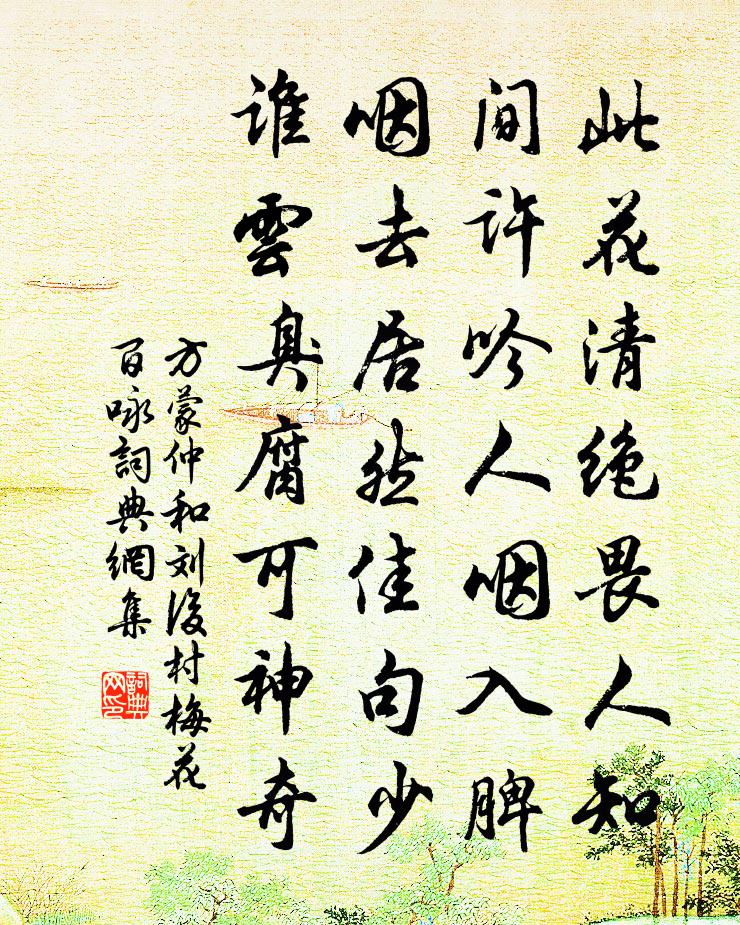 此花清绝畏人知
间许吟人咽入脾
咽去居然佳句少
谁雲臭腐可神奇
方蒙仲和刘後村梅花
百咏詞典網集
詞典
网印